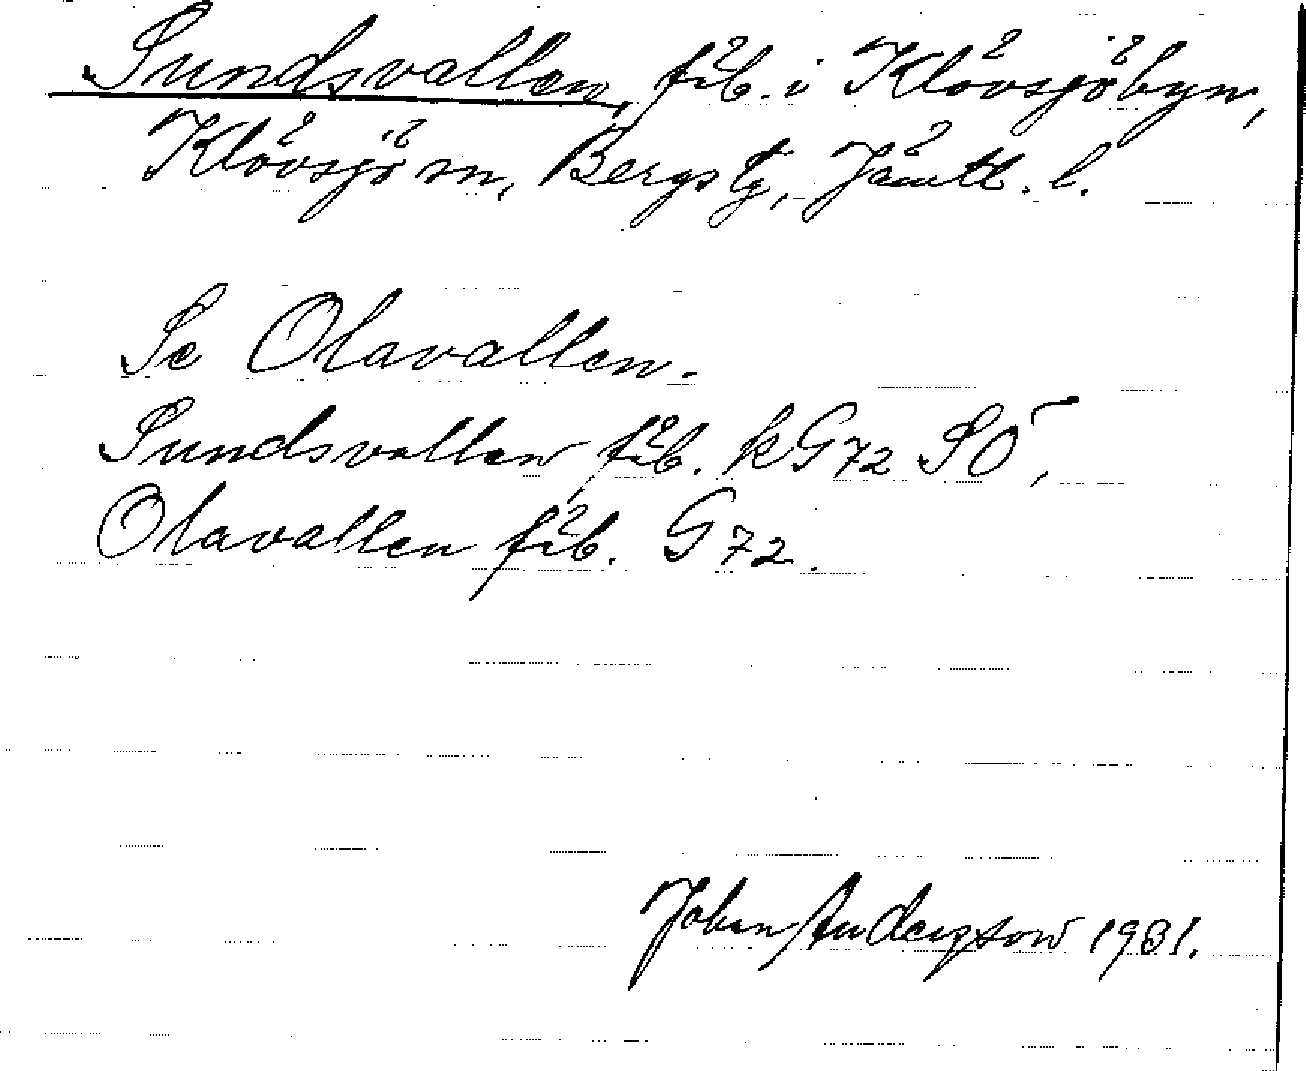 Sundsvallen, fäb. i Klövsjöbyn,
Klövsjö sn, Bergs tg, Jämtl. l.
Se Olavallen.
Sundsvallen fäb. k G72 SÖ,
Olavallen fäb. G72.
Johan Andersson 1931.